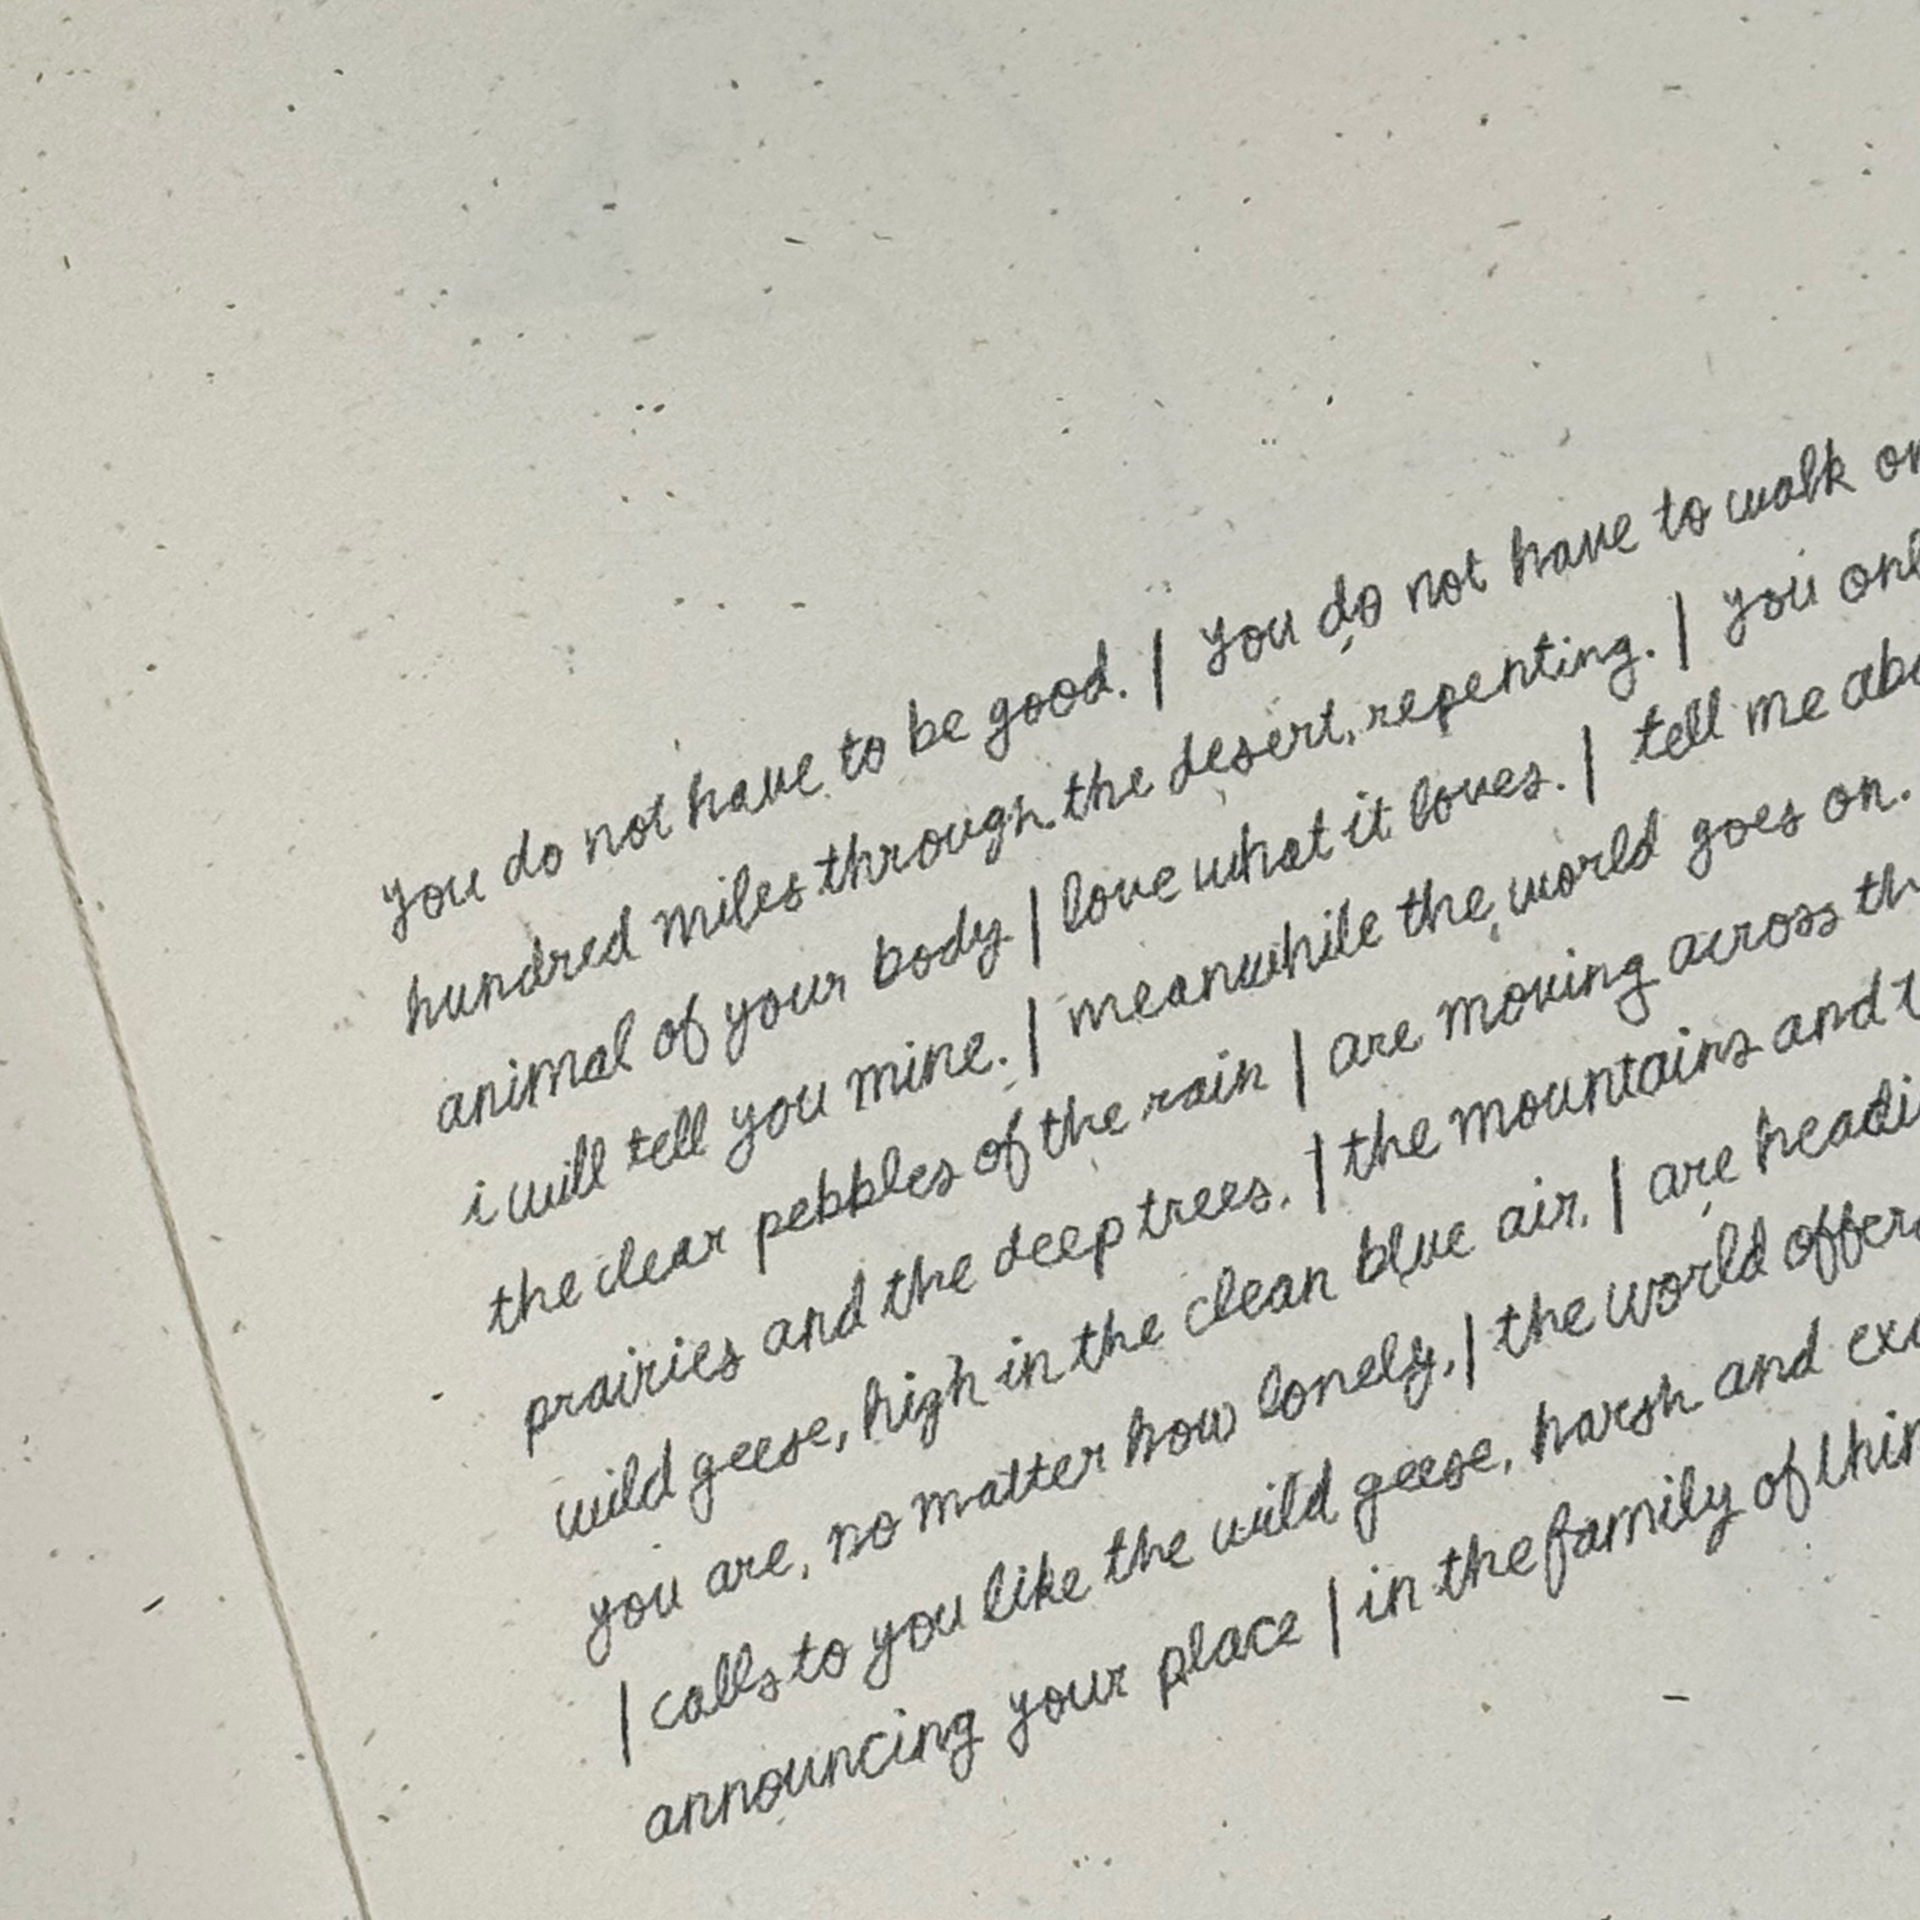 you do not have to be good. | you do not have to walk on
hundred miles through the desert, repenting. | you
animal of your body | love what it loves. | tell me
i will tell you mine. | meanwhile the world goes on.
the clear pebbles of the rain | are moving across
prairies and the deep trees. | the mountains and
wild geese, high in the clean blue air, | are
you are, no matter how lonely, | the world offers
| calls to you like the wild geese, harsh and
announcing your place | in the family of